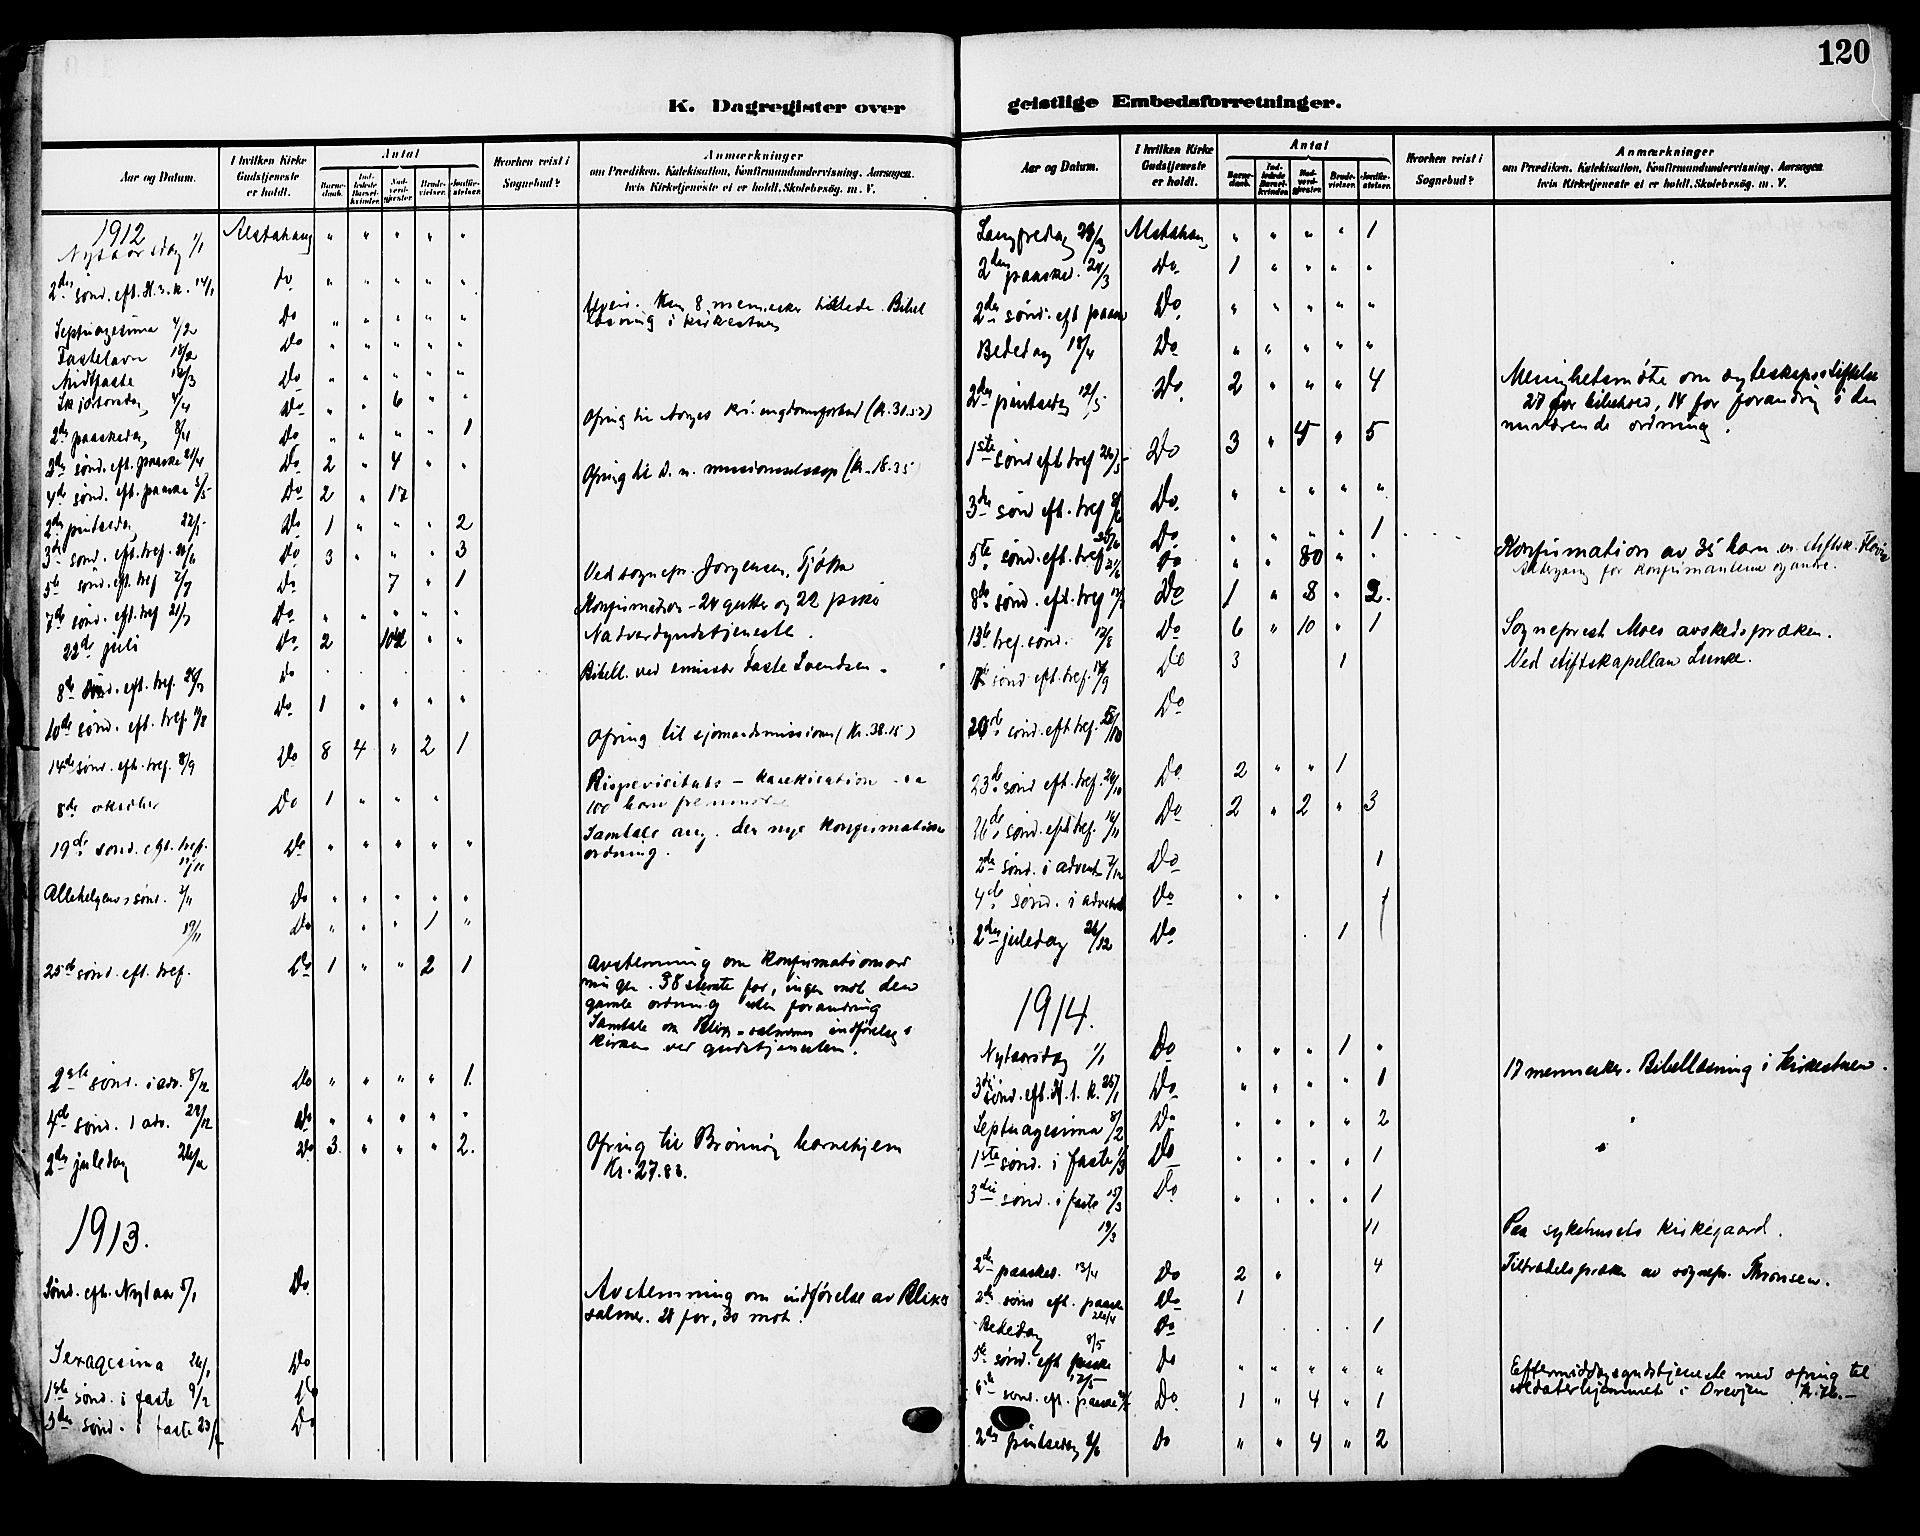 120
K. Dagregister over geistlige Embedsforretninger.
Aar og Datum. I hvilken Kirke Gudstjeneste er holdt. Antal Barnedaab. Indledede Barselkvinder. Nadverdgjester. Brudevielser. Jordfæstelser. Hvorhen reist i Sognebud? Anmærkninger om Prædiken, Katekisation, Konfirmandundervisning, Aarsagen, hvis Kirketjeneste ei er holdt, Skolebesøg. m. V.
1912
Nytaarsdag 1/1 Alstahaug " " " " "
2den sønd. eft. H. 3. K. 14/1 do " " " " "
Septuagesima 4/2 Do " " " " " Uveir. Kun 8 mennesker tilstede. Bibel
læsning i kirkestuen
Fastelavn 18/2 Do " " " " "
Midtfaste Do " " " " "
Skjærtorsdag 4/4 Do " " 6 " "
2den paaskedag 8/4 Do " " " " 1 Ofring til Norges Kr. ungdomsforbud
3die sønd. eft. paaske 21/4 Do 2 " 4 " "
4de sønd. eft. paaske 5/5 Do 2 " 17 Ofring til d. n. missionsselskap (Kr. 16.35)
2den pintsedag Do 1 " " " 2
3die sønd. eft. tref. Do 3 " " " 3
5te sønd. eft. tref 7/7 Do 7 " 1 Ved sognepr. Jørgensen, Tjøtta
7de sønd. eft. tref 21/7 Do " " " " " Konfirmation - 24 gutter og 22 piker
22de juli Do 2 104 " " Nadverdgudstjeneste.
8de sønd. eft. tref. do Bibell. ved emissær Faste Svendsen.
10de sønd. eft. tref. Do 1 " " " "
14de sønd. eft. tref. 8/9 Do 8 4 " 2 1 Ofring til sjømandsmissionen (Kr. 38.15)
8de oktober Do 1 " " " Bispevisitats - katekisation. ca
100 barn fremmøtte
19de sønd. eft. tref. Do " " " " " Samtale ang. den nye konfirmations
ordning.
Allehelgens sønd. 3/11 Do " " " " "
17/11 Do " " " 1 "
25de sønd. eft. tref. Do 1 " " 2 1 Avstemning om konfirmationsord
ningen. 38 stemte for, ingen mot den
gamle ordning uten forandring
Samtale om Blix-salmernes indførelse i
kirken ved gudstjenesten.
2den sønd. i adv. 8/12 Do " " " " 1
4de sønd. i adv. 22/12 Do " " " " "
2den juledag 26/12 Do 3 " " " 2. Ofring til Brønnøy barnehjem
Kr. 27.83.
1913.
Sønd. eft. Nytaar 5/1 Do Avstemning om indførelse av Blix's
salmer. 28 for, 30 mot.
Sexagesima 26/1 Do
1ste sønd. i faste 9/2 Do
3die sønd. i faste 23/2 Do
Aar og Datum. I hvilken Kirke Gudstjeneste er holdt. Antal Barnedaab. Indledede Barselkvinder. Nadverdgjester. Brudevielser. Jordfæstelser. Hvorhen reist i Sognebud? Anmærkninger om Prædiken, Katekisation, Konfirmandundervisning, Aarsagen, hvis Kirketjeneste ei er holdt, Skolebesøg. m. V.
Langfredag Alstahaug " " " " 1
2den paasked. 24/3 Do 1 " " " "
2den sønd. eft paaske Do " " " " "
Bededag 18/4 Do " " " " "
2den pintsedag 12/5 Do 2 " " " 4 Menighetsmøte om egteskapsstiftelse
27 for bibehold, 14 for forandring i den
nuværende ordning.
1ste sønd eft tref Do 3 " 45 " 5
3die sønd eft. tref 8/6 Do " " " " "
Do " " " " 1
5te sønd. eft. tref do " " 80 " " Konfirmation av 35 barn
Altergang for konfirmanterne og andre.
8de sønd. eft. tref Do 1 " 8 " 2.
13de tref. sønd. 17/8 Do 6 " 10 " 1 Sogneprest Moes avskedspræken.
sønd. eft. tref. Do 3 1 Ved stiftskapellan Lunke.
20de sønd eft tref Do
23de sønd eft. tref Do 2 " " 1
26de sønd. eft tref. 16/11 Do 2 " 2 " 3
2den sønd. i advent 7/12 Do 1
4de sønd. i advent Do " " 1
2den juledag 26/12 Do 1
1914.
Nytaarsdag 1/1 Do " " " 1 "
3die sønd. eft. H. 3. K. 25/1 Do " " " " 1 17 mennesker. Bibellæsning i kirkestuen.
Septuagesima 8/2 Do " " " " 2 "
1ste sønd. i faste 1/3 Do " " " " 1 "
3die sønd. i faste 15/3 Do " " " " 1
19/3 11 Paa sykehusets kirkegaard.
2den paasked. 13/4 Do 2 " 4 Tiltrædelsespræken av sognepr. Thronsen.
2den sønd eft. paaske 26/4 Do 1
Bededag 8/5 Do 1
5te sønd. eft paaske 17/5 Do " " " " " Eftermiddagsgudstjeneste med ofring til
soldaterhjemmet i Drevjen
6te sønd. eft. paaske Do 1 " 4 " 1
2den pintsedag 1/6 Do " " 4 " 2